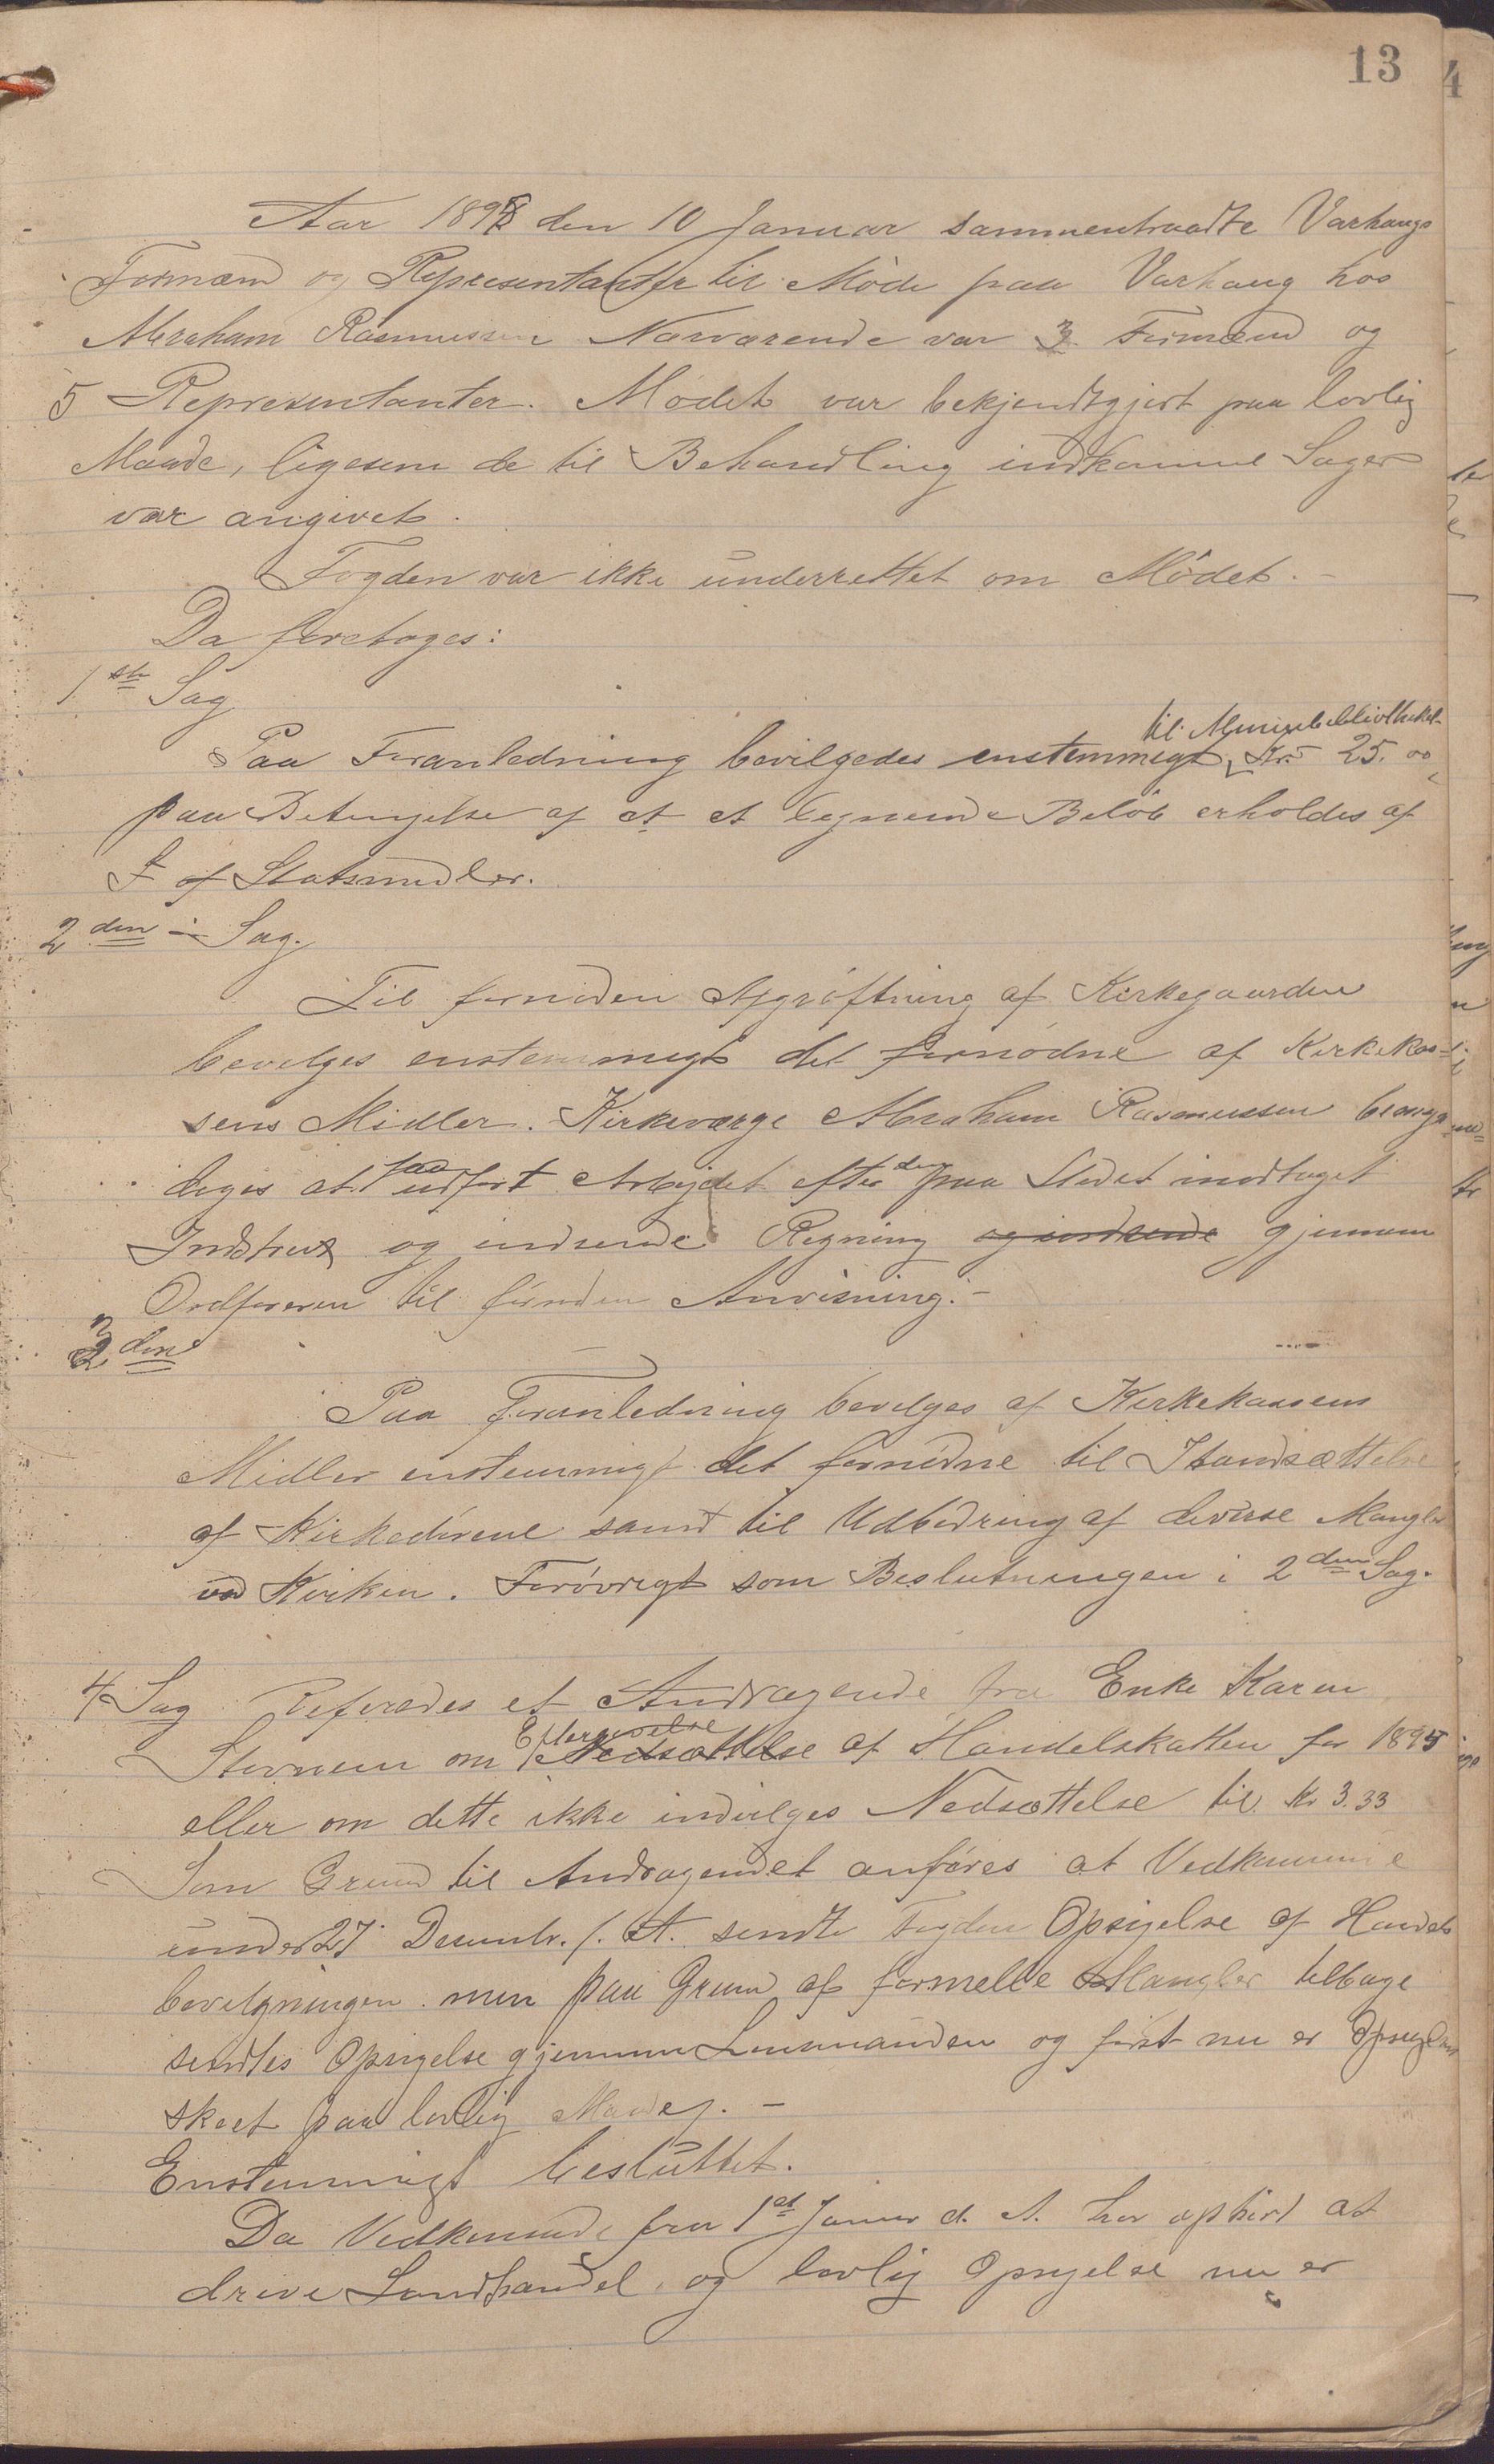 13
Aar 1895 den 10 Januar sammentraadte Varhaugs
Formænd og Representanter til Møde paa Varhaug hos
Abraham Rasmussen Nærværende var 3 Formænd og
5 Representanter. Mødet var bekjendtgjort paa lovlig
Maade, ligesom de til Behandling indkomne Sager
var angivet.
Fogden var ikke underrettet om Mødet. –
Da foretoges:
1ste Sag
til Almuebibliotheket
Paa Foranledning bevilgedes enstemmigt Kr. 25.00
paa Betingelse af at et lignende Beløb erholdes af
af Statsmidler.
2den Sag.
Til fornøden Afgrøftning af Kirkegaarden
bevilges enstemmigt det fornødne af Kirkekas-
sens Midler. Kirkeværge Abraham Rasmussen bemyn-
diges at faa udført Arbejdet efter den paa Stedet indtaget
Indstrux og indsende Regning og indsende gjennem
Ordføreren til fornøden Anvisning. –
3den
Paa Foranledning bevilges af Kirkekassens
Midler enstemmigt det fornødne til Istandsættelse
af Kirkedørene samt til Udbedring af diverse Mangler
ved Kirken. Forøvrigt som Beslutningen i 2den Sag.
4 Sag Refereredes et Andragende fra Enke Karen
Stornem om Eftergivelse Nedsættelse af Handelskatten for 1895
eller om dette ikke indvilges Nedsættelse til Kr 3.33
Som Grund til Andragendet anføres at Vedkommende
under 27 Decembr. f. A. sendte Fogden Opsigelse af Handels
bevilgningen men paa Grund af formelle Mangler tilbage
sendtes Opsigelse gjennem Lensmanden og først nu er Opsigelsen
skeet paa lovlig Maade. –
Enstemmigt besluttet.
Da Vedkommende fra 1st Januar d. A. har ophørt at
drive Landhandel og lovlig Opsigelse nu er